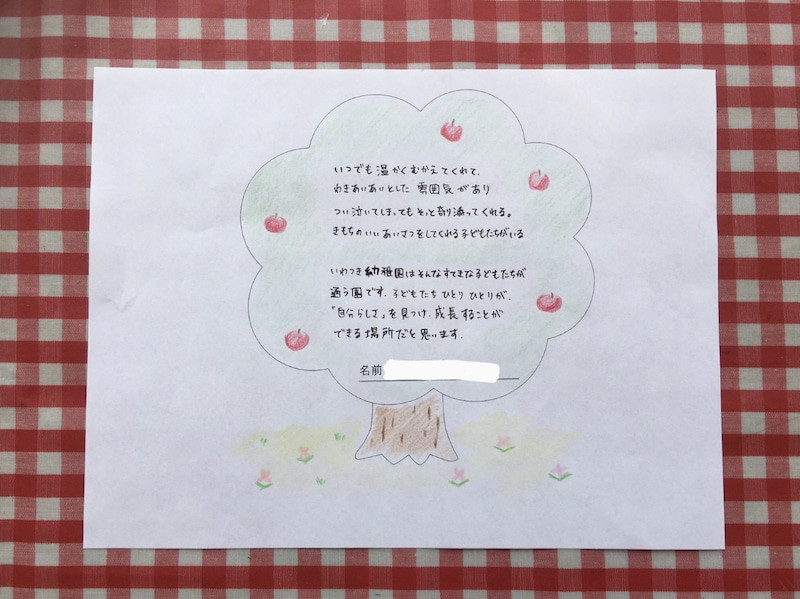 いつでも温かくむかえてくれて、
わきあいあいとした 雰囲気があり
つい泣いてしまってもそっと寄り添ってくれる。
きもちのいいあいさつをしてくれる子どもたちがいる
いわつき幼稚園はそんなすてきな子どもたちが
通う園です。子どもたち ひとり ひとりが、
「自分らしさ」を見つけ、成長することが
できる場所だと思います。
名前